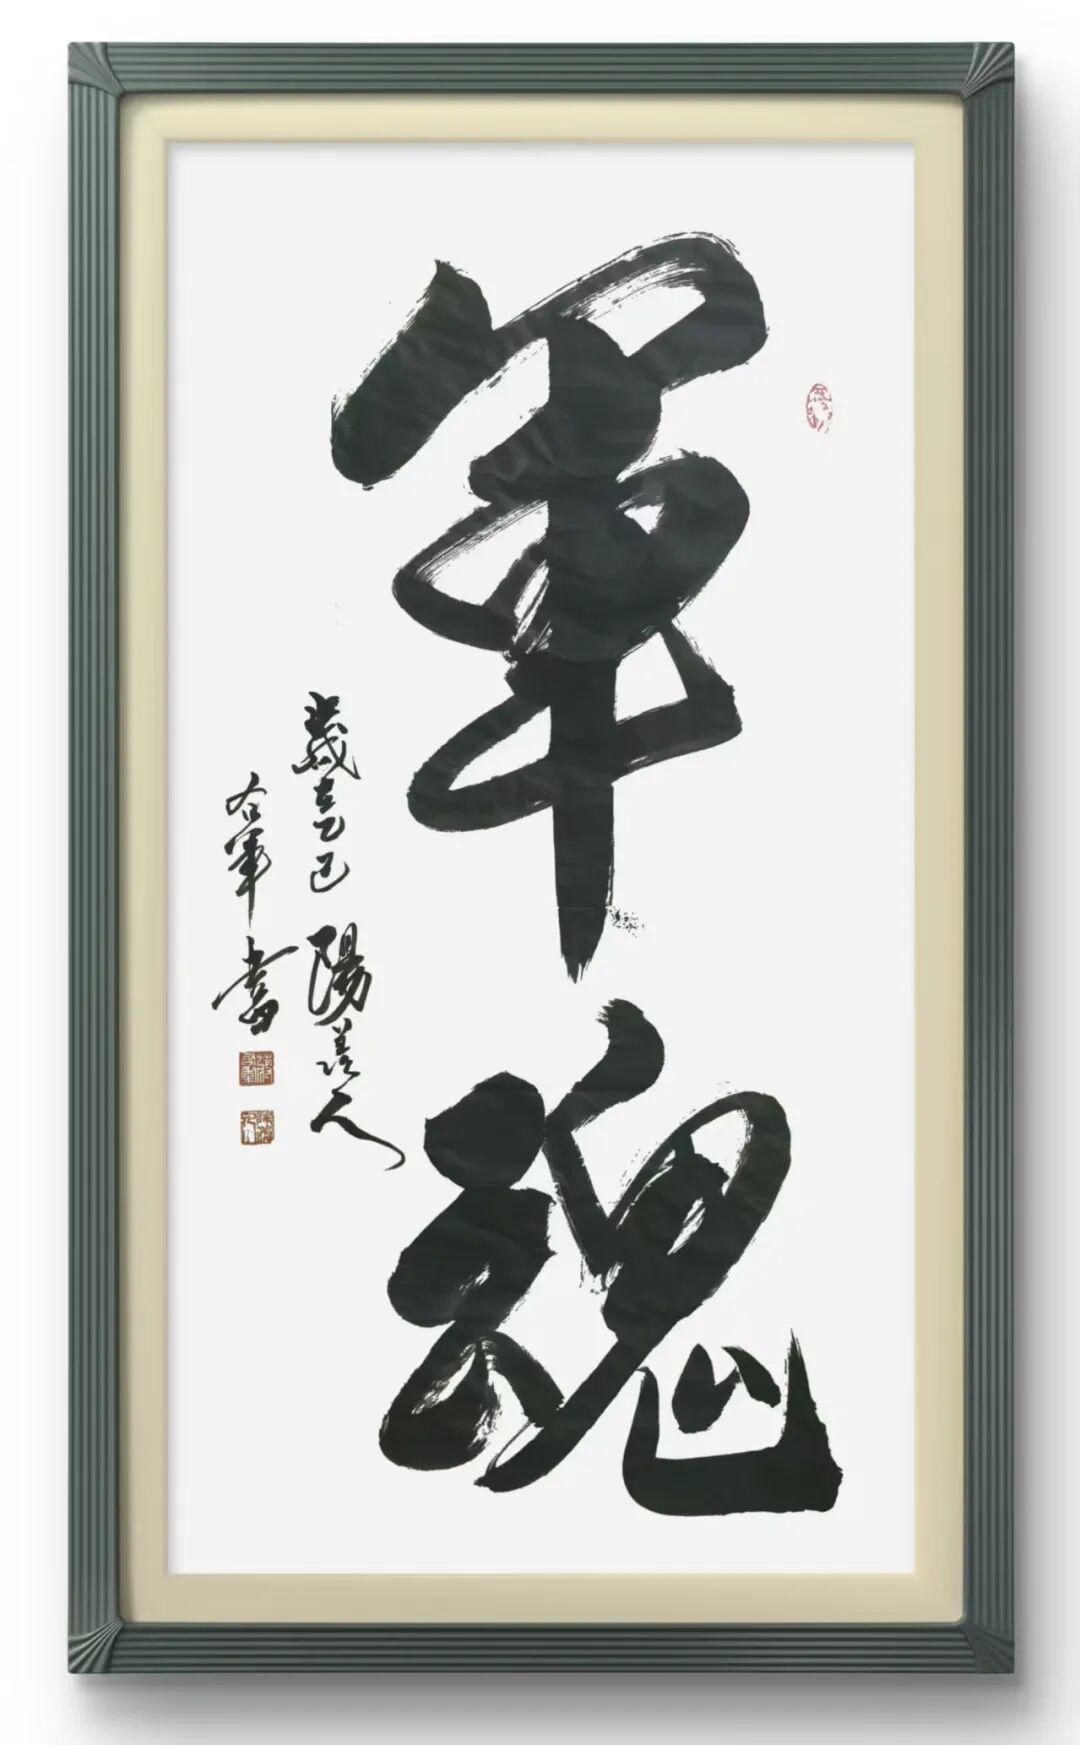 軍魂
歲在乙巳 陽羨人
右軍書